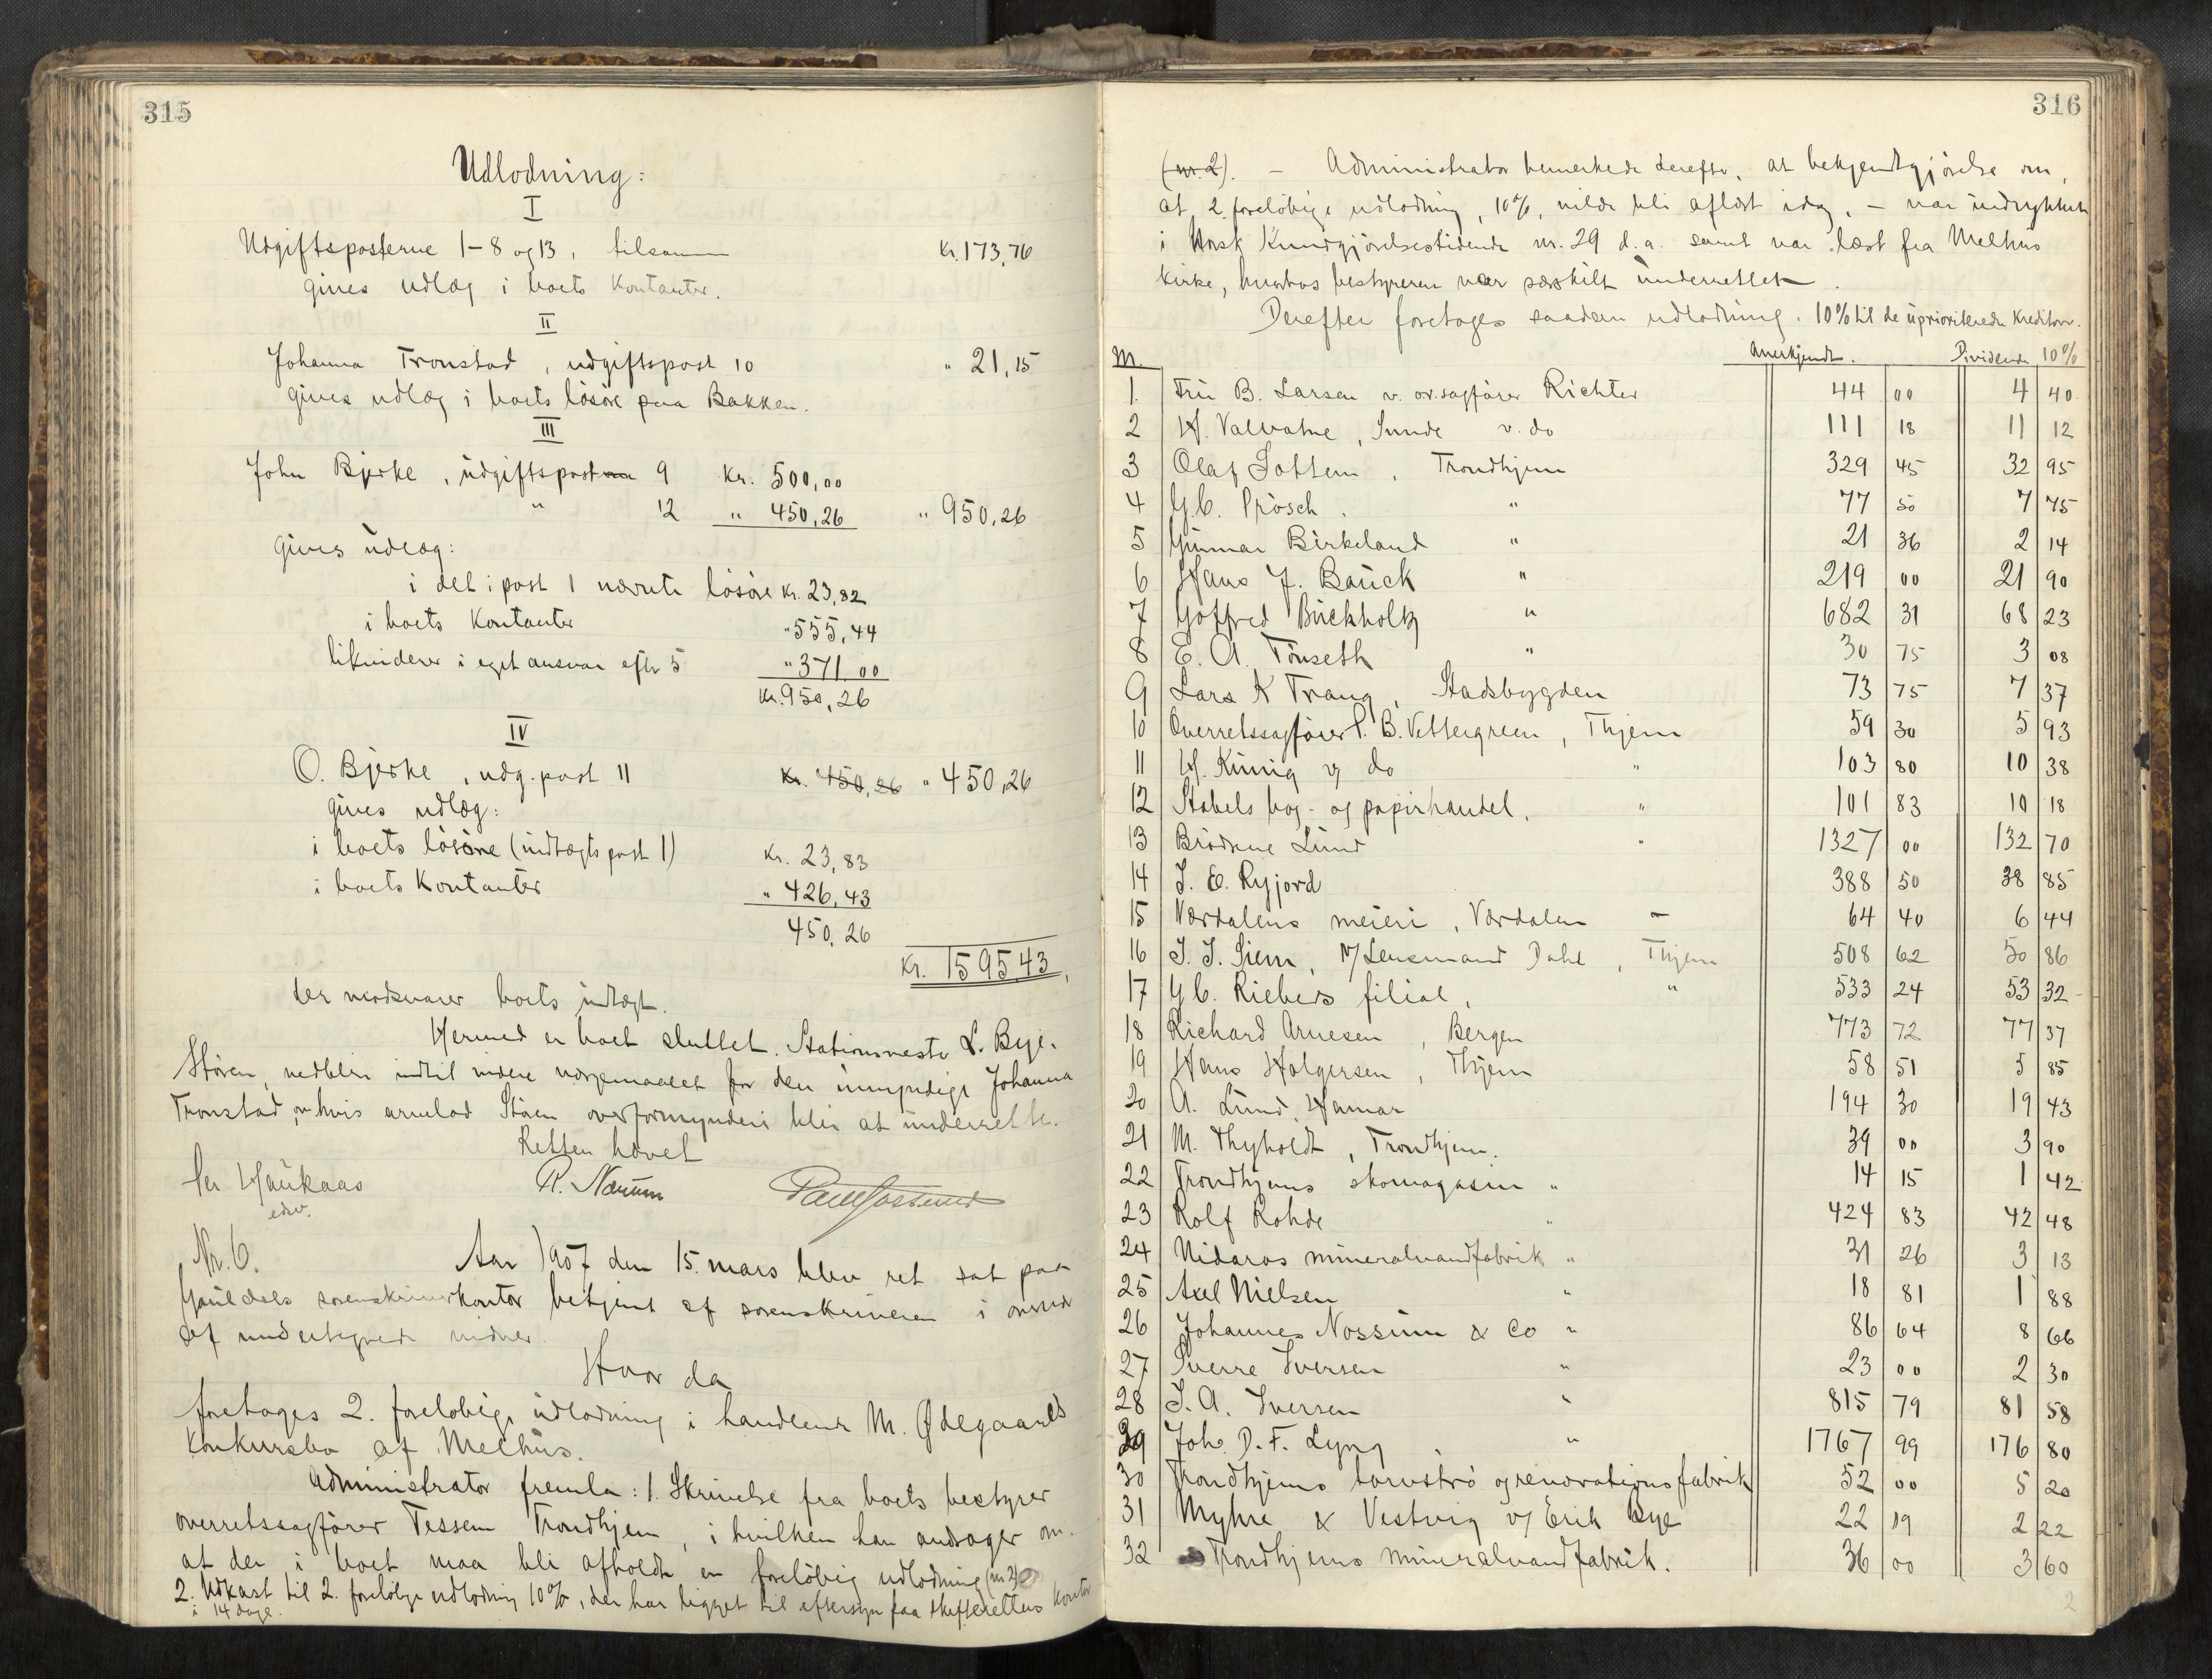 315
Udlodning:
I
Udgiftsposterne 1-8 og 13, tilsammen Kr. 173,76
gives udlæg i boets Kontanter.
II
Johanna Tronstad, udgiftspost 10 " 21,15
gives udlæg i boets lösöre paa Bakken.
III
John Bjerke, udgiftspost 9 Kr. 500,00
" 12 " 450,26 " 950,26
gives udlæg:
i det i post 1 nævnte lösöre Kr. 23,82
i boets Kontanter " 555,44
likviderer i eget ansvar efter 5 " 371 00
Kr. 950,26
IV
O. Bjerke, udg. post 11 Kr. 450,26 " 450,26
gives udlæg:
i boets lösöre (indtægtspost 1) Kr. 23,83
i boets Kontanter " 426,43
450,26
Kr. 1595,43,
der modsvarer boets indtægt.
Hermed er boet sluttet. Stationsmester L. Bye,
Stören, vedbliver indtil videre værgemaalet for den umyndige Johanna
Tronstad, om hvis arvelod Stören overformynderi blir at underrette.
Retten hævet
Per Haukaas R. Nærum
edsv.
Nr. 6. Aar 1907 den 15. mars blev ret sat paa
Gauldals sorenskriverkontor betjent af sorenskriveren i overvær
af undertegnede vidner.
Hvor da
foretoges 2. foreløbige udlodning i handlende M. Ødegaards
Konkursbo af Melhus.
Administrator fremla: 1. Skrivelse fra boets bestyrer
overretssagfører Tessem Trondhjem, i hvilken han andrager om
at der i boet maa bli afholdt en foreløbig udlodning (nr. 2)
2. Udkast til 2. foreløbige udlodning 10%, der har ligget til eftersyn paa skifterettens Kontor
i 14 dage.
316
(nr. 2). - Administrator bemerkede derefter, at bekjendtgjörelse om,
at 2. foreløbige udlodning, 10%, vilde bli afholdt idag, - var indrykket
i Norsk Kundgjörelsestidende nr. 29 d.a. samt var læst fra Melhus
kirke, hvorhos bestyreren var særskilt underrettet.
Derefter foretoges saadan udlodning. 10% til de uprioriterede Kreditorer.
Nr. Anerkjendt. Dividende 10%
1. Fru B. Larsen v. ov.sagfører Richter 44 00 4 40
2 H. Valvatne, Sunde v. do 111 18 11 12
3 Olaf Lottem, Trondhjem 329 45 32 95
4 G.C. Prösch. " 77 50 7 75
5 Gunnar Birkeland " 21 36 2 14
6 Hans J. Bauck " 219 00 21 90
7 Gotfred Buckholtz " 682 31 68 23
8 E. A. Tönseth " 30 75 3 08
9 Lars K Trang, Stadsbygden 73 75 7 37
10 Overretssagfører P. B. Vettergreen, Thjem 59 30 5 93
11 H. Künig v/ do " 103 80 10 38
12 Stabels bog- og papirhandel. " 101 83 10 18
13 Brödrene Lund " 1327 00 132 70
14 J. E. Ryjord 388 50 38 85
15 Værdalens meieri, Værdalen 64 40 6 44
16 J. J. Siem, v/ Lensmand Dahl, Thjem 508 62 50 86
17 G.C. Riebers filial, " 533 24 53 32
18 Richard Arnesen, Bergen 773 72 77 37
19 Hans Holgersen, Thjem 58 51 5 85
20 A. Lund, Hamar 194 30 19 43
21 M. Thyholdt, Trondhjem. 39 00 3 90
22 Trondhjems skomagasin " 14 15 1 42
23 Rolf Rohde " 424 83 42 48
24 Nidaros mineralvandfabrik " 31 26 3 13
25 Axel Nielsen " 18 81 1 88
26 Johannes Nossum & Co " 86 64 8 66
27 Sverre Iversen " 23 00 2 30
28 J. A. Iversen " 815 79 81 58
29 Joh. D. F. Lyng. " 1767 99 176 80
30 Trondhjems torvströ og renovationsfabrik 52 00 5 20
31 Myhre & Vestvig v/ Erik Bye 22 19 2 22
32 Trondhjems mineralvandfabrik. 36 00 3 60
2